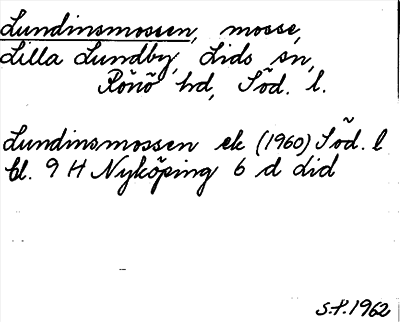 Lundinsmossen, mosse,
Lilla Lundby, Lids sn,
Rönö hd, Söd. l.
Lundinsmossen ek (1960) Söd. l
bl. 9 H Nyköping 6 d Lid
S.P. 1962